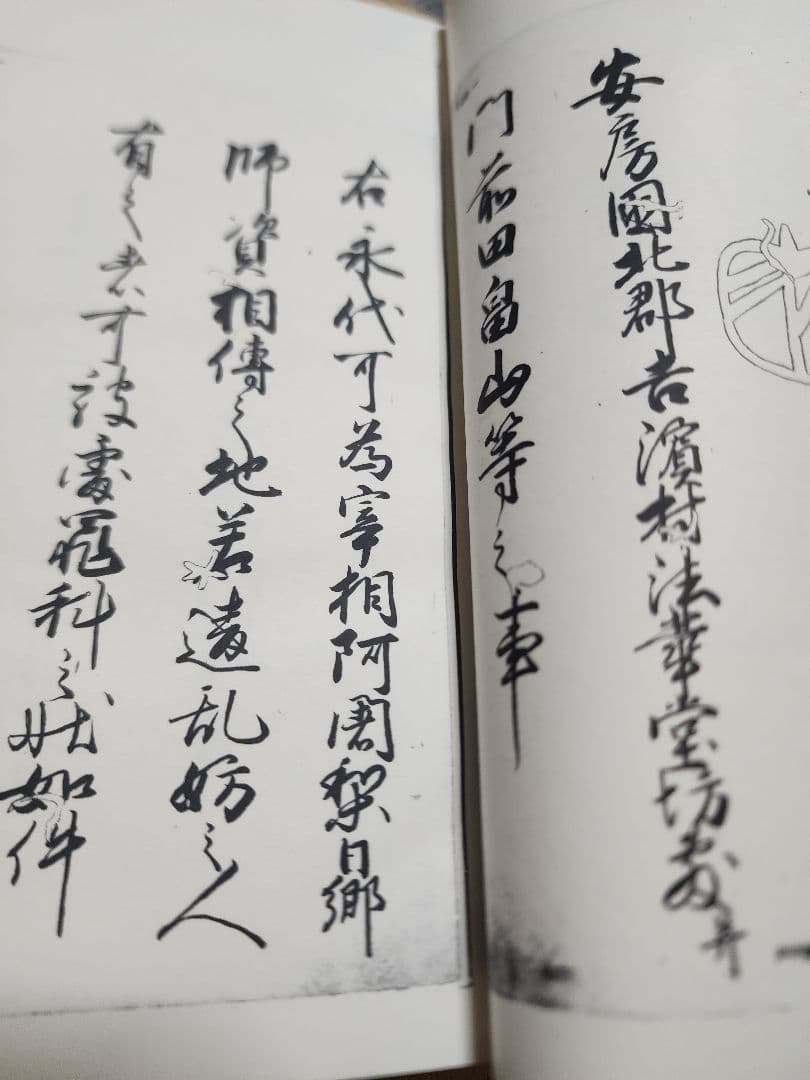 安房國北郡吉濱村法華堂坊敷并
門前田畠山等之事
右永代可為宰相阿闍梨日郷
師資相傳之地若違乱妨之人
有之者可被處罪科之状如件